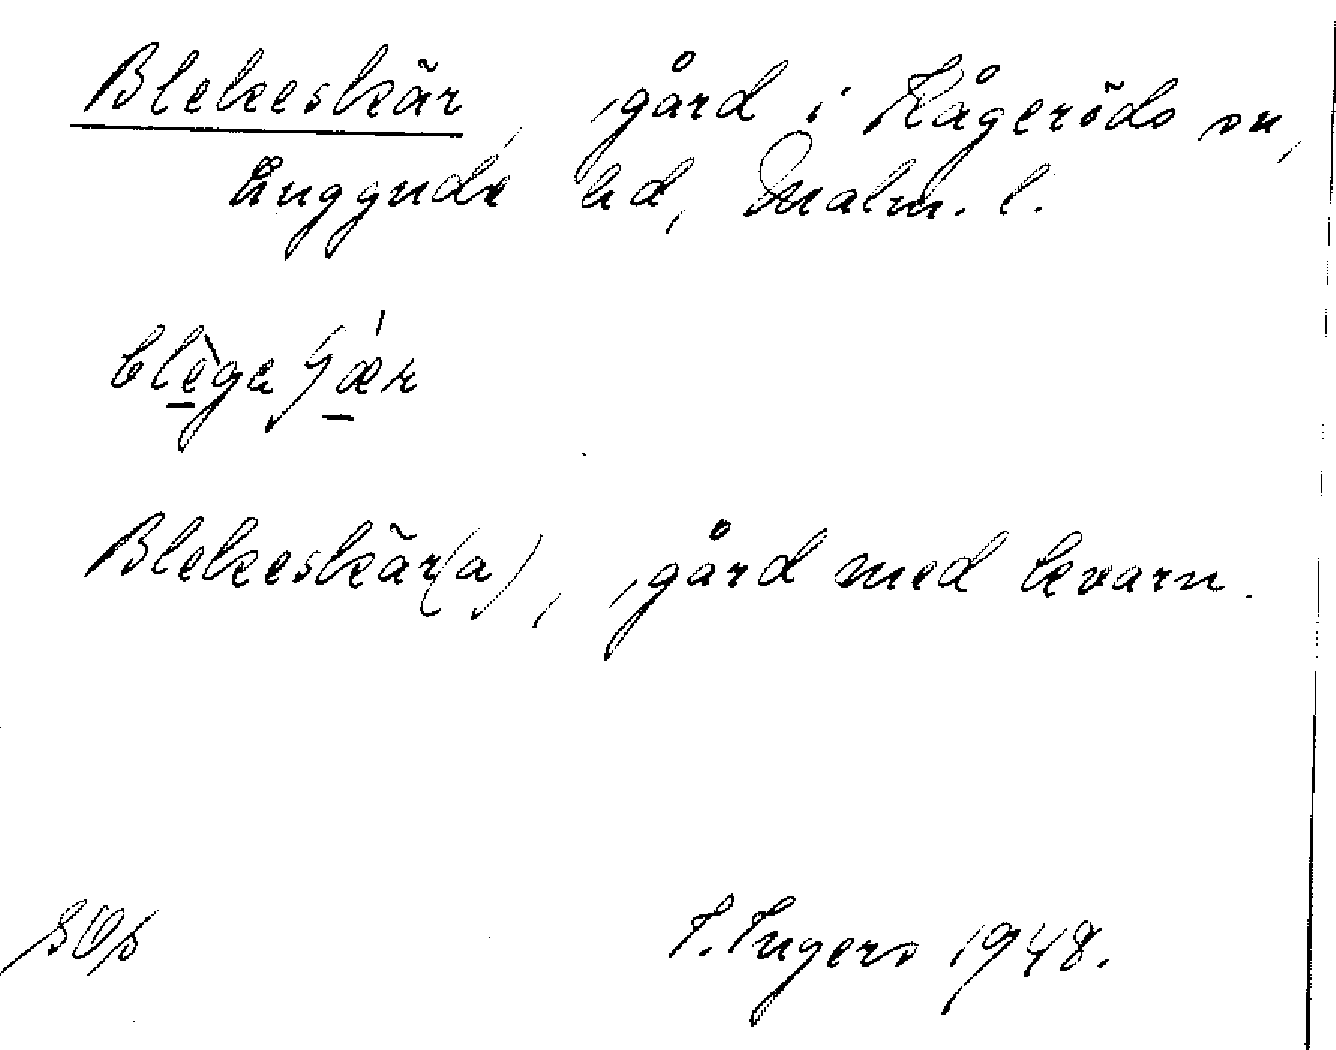 Blekeskär, gård i Kågeröds sn,
Luggude hd, Malm. l.
Blekeskär(a), gård med kvarn.
I. Ingers 1948.